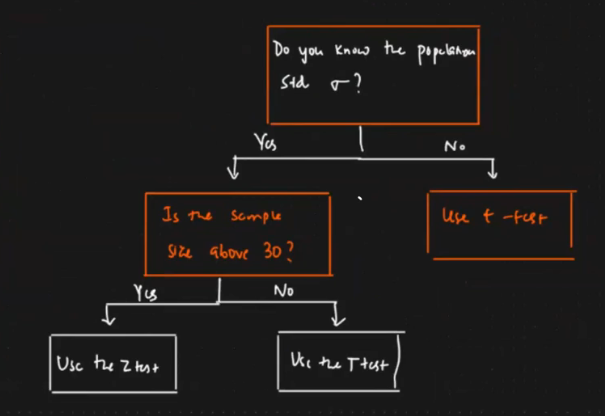 Do you know the population
std σ?
Yes
No
Is the sample
size above 30?
Use t-test
Yes
No
Use the Z test
Use the T test